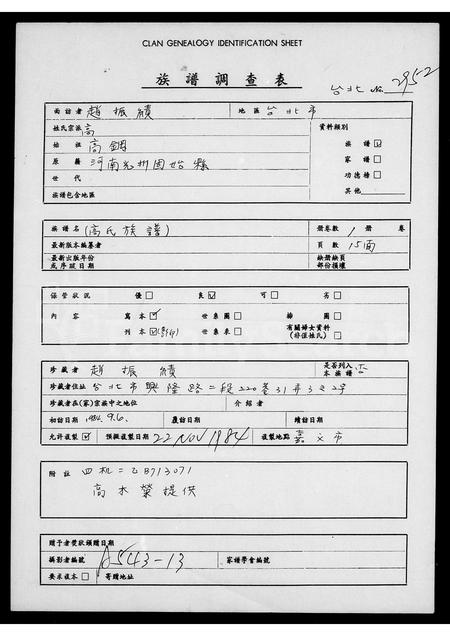 CLAN GENEALOGY IDENTIFICATION SHEET
族譜調查表
台北 No. 2952
面訪者 趙振績 地區 台北市
姓氏宗派 高 資料類別
始祖 高鋼 族譜 ☑
原籍 河南光州固始縣 家譜 □
世代 功德榜 □
族譜包含地區 其他
族譜名 (高氏族譜) 冊卷數 1 冊 卷
最新版本編纂者 頁數 15面
最新出版年份 缺冊缺頁
或序跋日期 部份損壞
保管狀況 優 □ 良 ☑ 可 □ 劣 □
內容 寫本 ☑ 世系圖 □ 插圖 □
刊本 ☑ (影印) 世系表 □ 有關婦女資料 □
(非僅姓氏)
珍藏者 趙振績 是否列入 否
本族譜
珍藏者住址 台北市興隆路二段220巷31弄3之2号
珍藏者在(家)宗族中之地位 介紹者
初訪日期 1984.9.6. 覆訪日期 續訪日期
允許複製 ☑ 預擬複製日期 22 NOV 1984 複製地點 嘉义市
附註 四机=乙B713071
高木榮提供
贈予者獎狀頒贈日期
攝影者編號 A543-13 家譜學會編號
要求複本 □ 寄贈地址